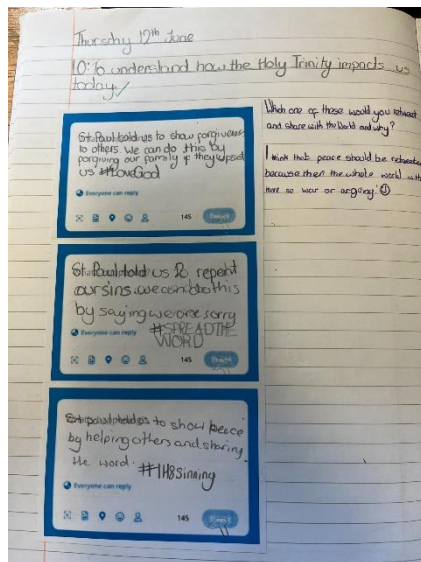 Thursday 12th June
LO: To understand how the Holy Trinity impacts us
today.
St Paul told us to show forgiveness
to others. We can do this by
forgiving our family if they upset
us #LoveGod
Everyone can reply
145
Tweet
St Paul told us to repent
our sins. we can do this
by saying we are sorry
#SPREADTHE
WORD
Everyone can reply
145
Tweet
St paul told us to show peace
by helping others and sharing
the word. #IH8sinning
Everyone can reply
145
Tweet
Which one of these would you retweet
and share with the World and why?
I think that peace should be
because then the whole world
so war or